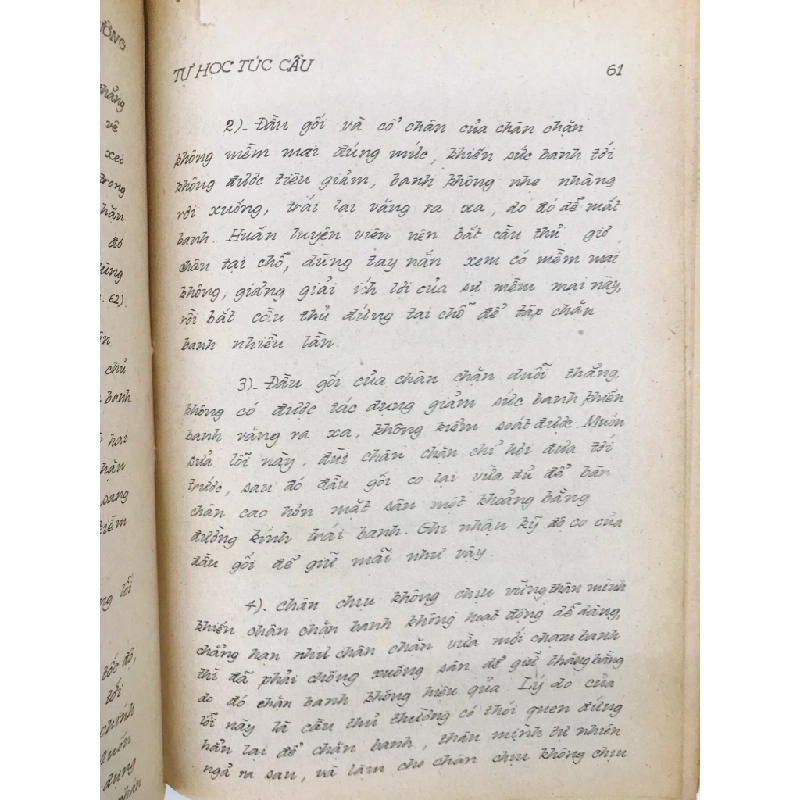 TỰ HỌC TÚC CẦU
61
2)_ Đầu gối và cổ chân của chân chặn
không mềm mại đúng mức, khiến sức banh tới
không được tiêu giảm, banh không nhẹ nhàng
rơi xuống, trái lại văng ra xa, do đó dễ mất
banh. Huấn luyện viên nên bắt cầu thủ giơ
chân tại chỗ, dùng tay nắn xem có mềm mại
không, giảng giải ích lợi của sự mềm mại này,
rồi bắt cầu thủ đứng tại chỗ để tập chặn
banh nhiều lần.
3)_ Đầu gối của chân chặn duỗi thẳng
không có được tác dụng giảm sức banh khiến
banh văng ra xa, không kiểm soát được. Muốn
sửa lỗi này, đùi chân chặn chỉ hơi đưa tới
trước, sau đó đầu gối co lại vừa đủ để bàn
chân cao hơn mặt sân một khoảng bằng
đường kính trái banh. Ghi nhận kỹ độ co của
đầu gối để giữ mãi như vậy.
4)_ Chân chịu không chịu vững thân mình
khiến chân chặn banh không hoạt động dễ dàng,
chẳng hạn như chân chặn vừa mới chạm banh
thì đã phải chống xuống sân để giữ thăng bằng
do đó chặn banh không hiệu qủa. Lý do của
lỗi này là cầu thủ thường có thói quen đứng
hẳn lại để chặn banh, thân mình tự nhiên
ngả ra sau, và làm cho chân chịu không chịu